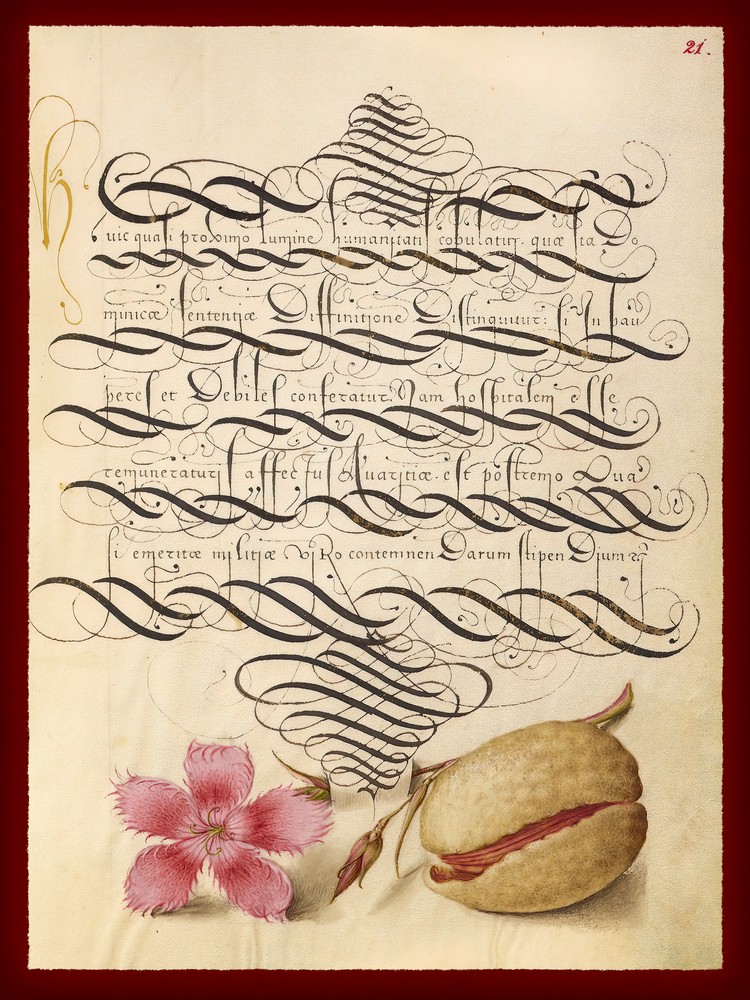 21.
huic quasi proximo lumine humanitati copulatur. quæ ita Do
minicæ sententiæ Diffinitione Distinguitur: si In pau
peres et Debiles conferatur, Nam hospitalem esse
remuneraturis affectus Auaritiæ est postremo Qua
si emeritæ militiæ viRo contemnen Darum stipen Dium